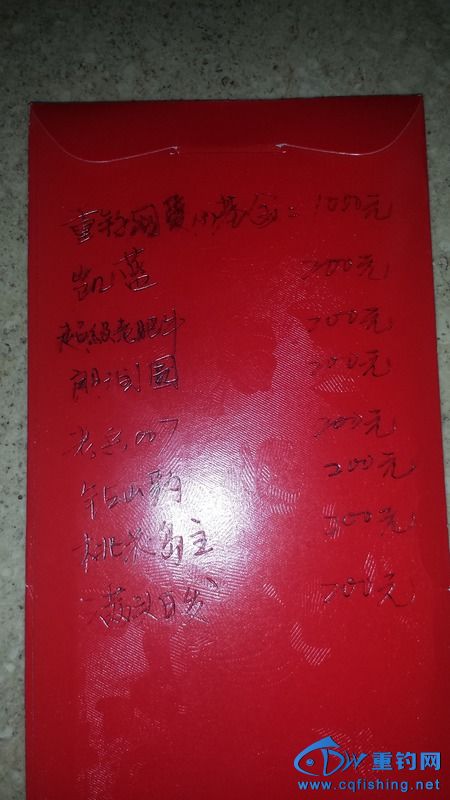 重钓网 基金: 1000元
凯蓝 200元
超级老肥牛 200元
200元
老兵007 200元
钻山豹 200元
桃花岛主 200元
200元
重钓网
www.cqfishing.net